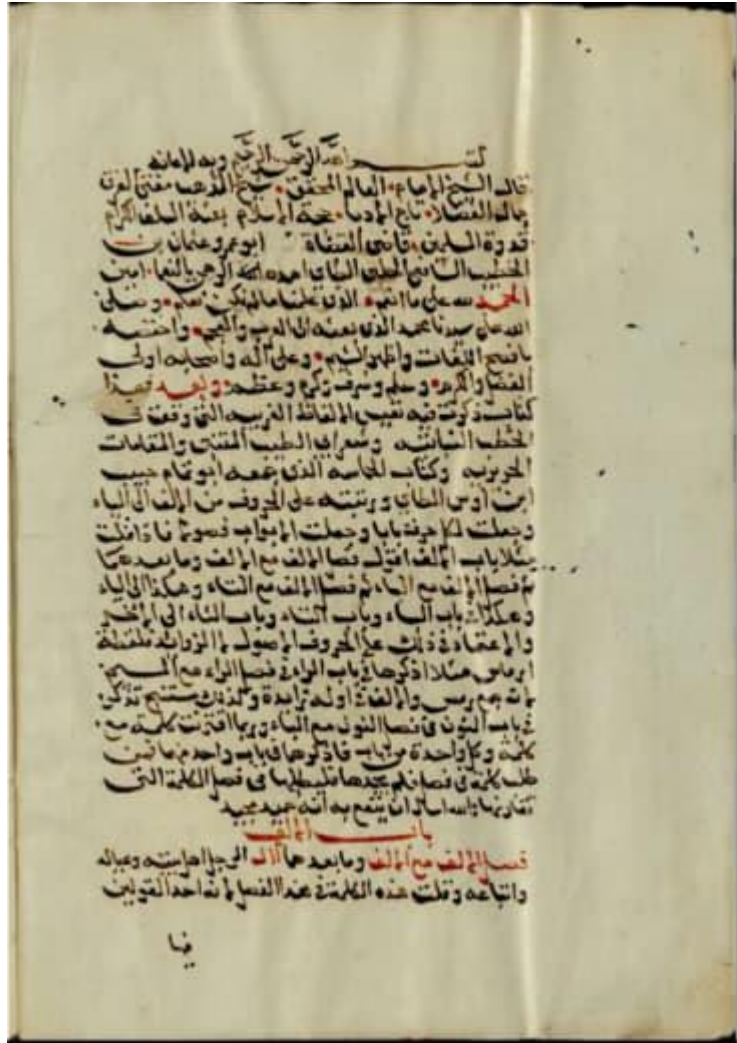 بسم الله الرحمن الرحيم وبه الاعانة
قال الشيخ الامام العالم المحقق شيخ المذهب مفتي الفرق
جمال الفضلا تاج الادبا حجة الاسلام بقية السلف الكرام
قدوة المسلمين قاضي القضاة ابو عمرو عثمان بن
الخطيب الشافعي الطائي الرحمن بالنعما امين
الحمد لله على ما انعم الذي علمنا ما لم نكن نعلم وصلى
الله على سيدنا محمد الذي بعثه الى العرب والعجم واختصه
بافصح اللغات واظهر الشيم وعلى اله واصحابه اولي
الفضل والكرم وسلم وشرف وكرم وعظم وبعد فهذا
كتاب ذكرت فيه تفسير الالفاظ الغريبه التي وقعت في
الخطب النباتيه وشعر ابي الطيب المتنبي والمقامات
الحريريه وكتاب الحماسه الذي جمعه ابو تمام حبيب
ابن اوس الطائي ورتبته على الحروف من الالف الى الياء
وجعلت لكل حرف بابا وجعلت الابواب فصولا فاذا قلت
مثلا باب الالف اقول فصل الالف مع الالف وما بعدهما
ثم فصل الالف مع الباء ثم فصل الالف مع التاء وهكذا الى الياء
وهكذا باب الباء وباب التاء وباب الثاء الى الاخير
والاعتماد في ذلك على الحروف الاصول لا الزوائد فلفظة
ارماس مثلا اذكرها في باب الراء في فصل الراء مع الميم
لانه جمع رمس والالف في اوله زايدة وكذلك تذكر
في باب النون في فصل النون مع الباء وربما اقترنت كلمة مع
كلمة وكل واحدة من باب فاذكرهما في باب واحد منهما فمن
طلب كلمة في فصل فلم يجدها فليطلبها في فصل الكلمة التي
تقارنها والله اسال ان ينفع به انه حميد مجيد
باب الالف
فصل الالف مع الالف وما بعدهما آل الرجل اهل بيته وعياله
واتباعه ونقلت هذه الكلمة في هذا الفصل لانه احد القولين